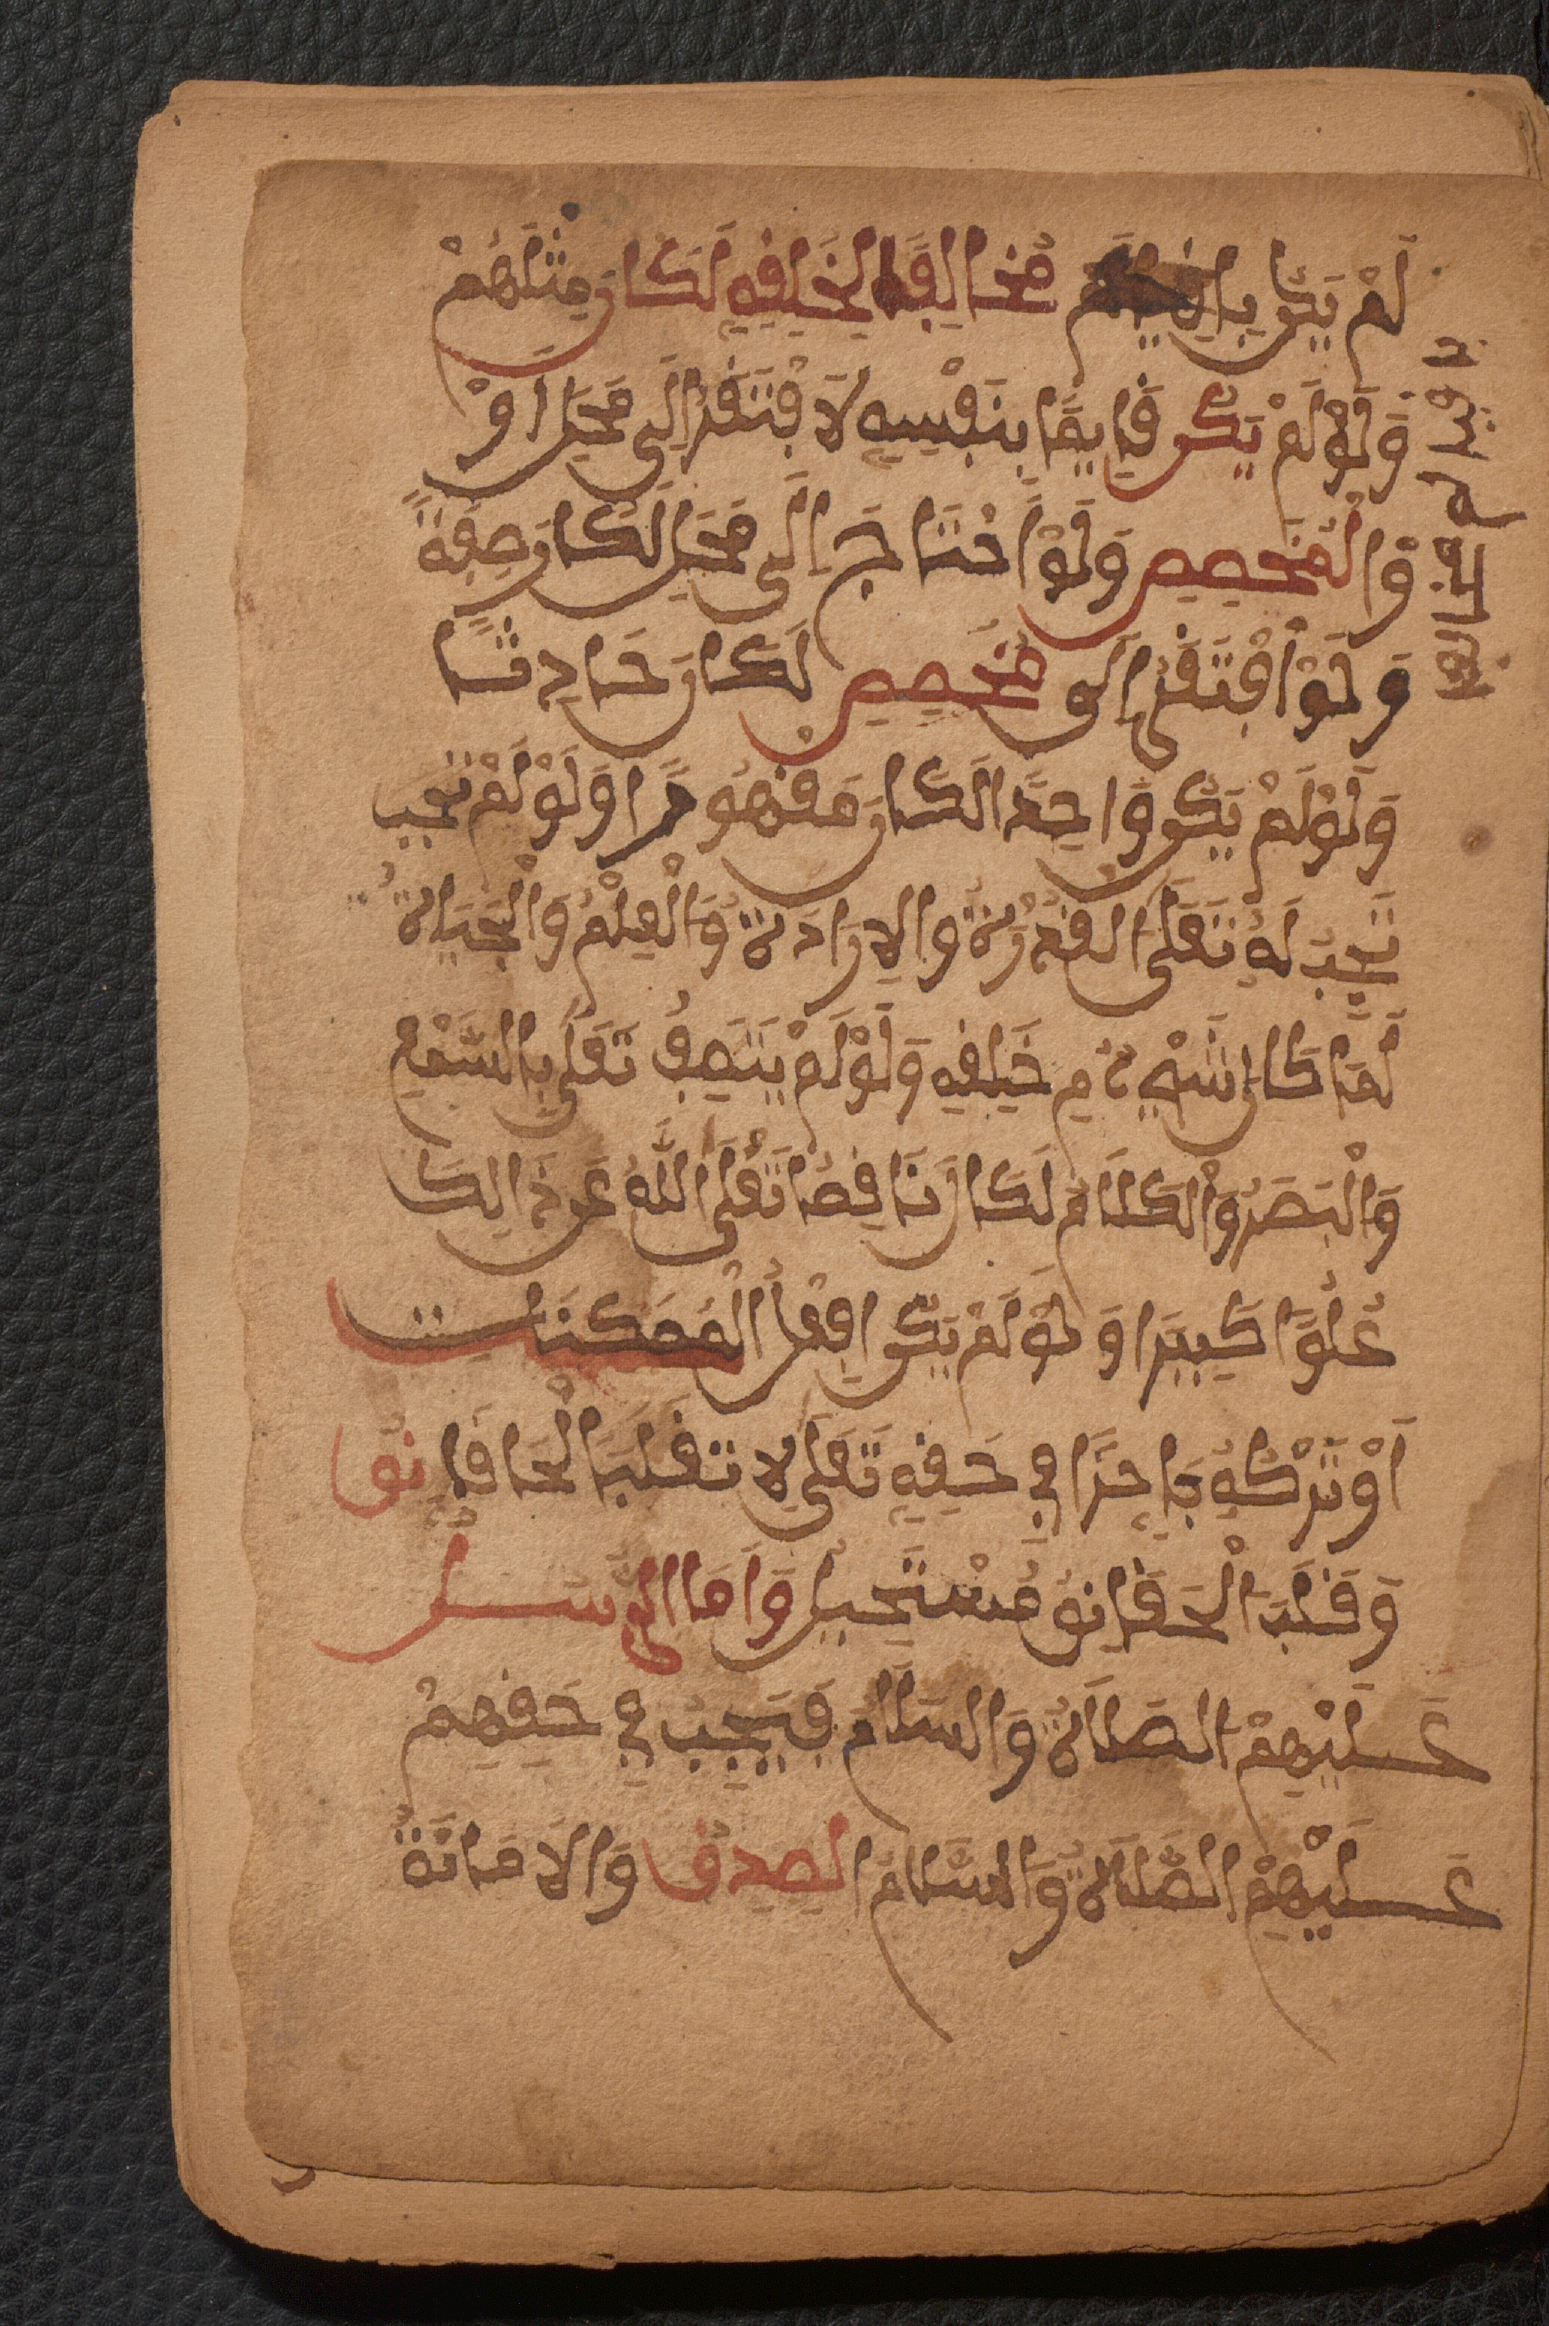 لَمْ يَكُن بَاقِيًا مُخَالِفًا لِخَلْقِهِ لَكَانَ مِثْلَهُمْ
وَلَوْ لَمْ يَكُن قَايِمًا بِنَفْسِهِ لَافْتَقَرَ إِلَى مَحَلٍّ أَوْ
وْالمُخَصِصِ وَلَوْ احْتَاجَ إِلَى مَحَلٍ لَكَانَ صِفَةً
وَلَوْ افْتَقَرَ إِلَى مُخَصِصٍ لَكَانَ حَادِثًا
وَلَوْ لَمْ يَكُن وَاحِدًا لَكَانَ مَقْهُورًا وَلَوْ لَمْ تَجِب
تَجِبْ لَهُ تَعَلَى الْقُدْرَةُ وَالإِرَادَةُ وَالْعِلْمُ وَالْحَيَاةُ
لَمَا كَانَ شَيْءٌ مِن خَلْقِهِ وَلَوْ لَمْ يَتَّصِفْ تَعَلَى بِالسَّمْعِ
وَالْبَصَرِ وَالْكَلَامِ لَكَانَ نَاقِصًا تَعَلَى اللَّهُ عَن ذَالِكَ
عُلُوًّا كَبِيرًا وَلَوْ لَمْ يَكُن فِعْلُ الْمُمْكِنَاتِ
أَوْ تَرْكُهُ جَايِزًا فِي حَقِّهِ تَعَلَى لانقَلَبَ الْحَقَا نِق
وَقَلْبُ الْحَقَانِق مُسْتَحِيلٌ وَأَمَا الرُّسُلُ
عَلَيْهِمْ الصَّلَاةُ وَالسَّلَامُ فَيَجِبُ فِي حَقِّهِمْ
عَلَيْهِمْ الصَّلَاةُ وَالسَّلَامُ الصِدْقُ وَالأَمَانَةُ